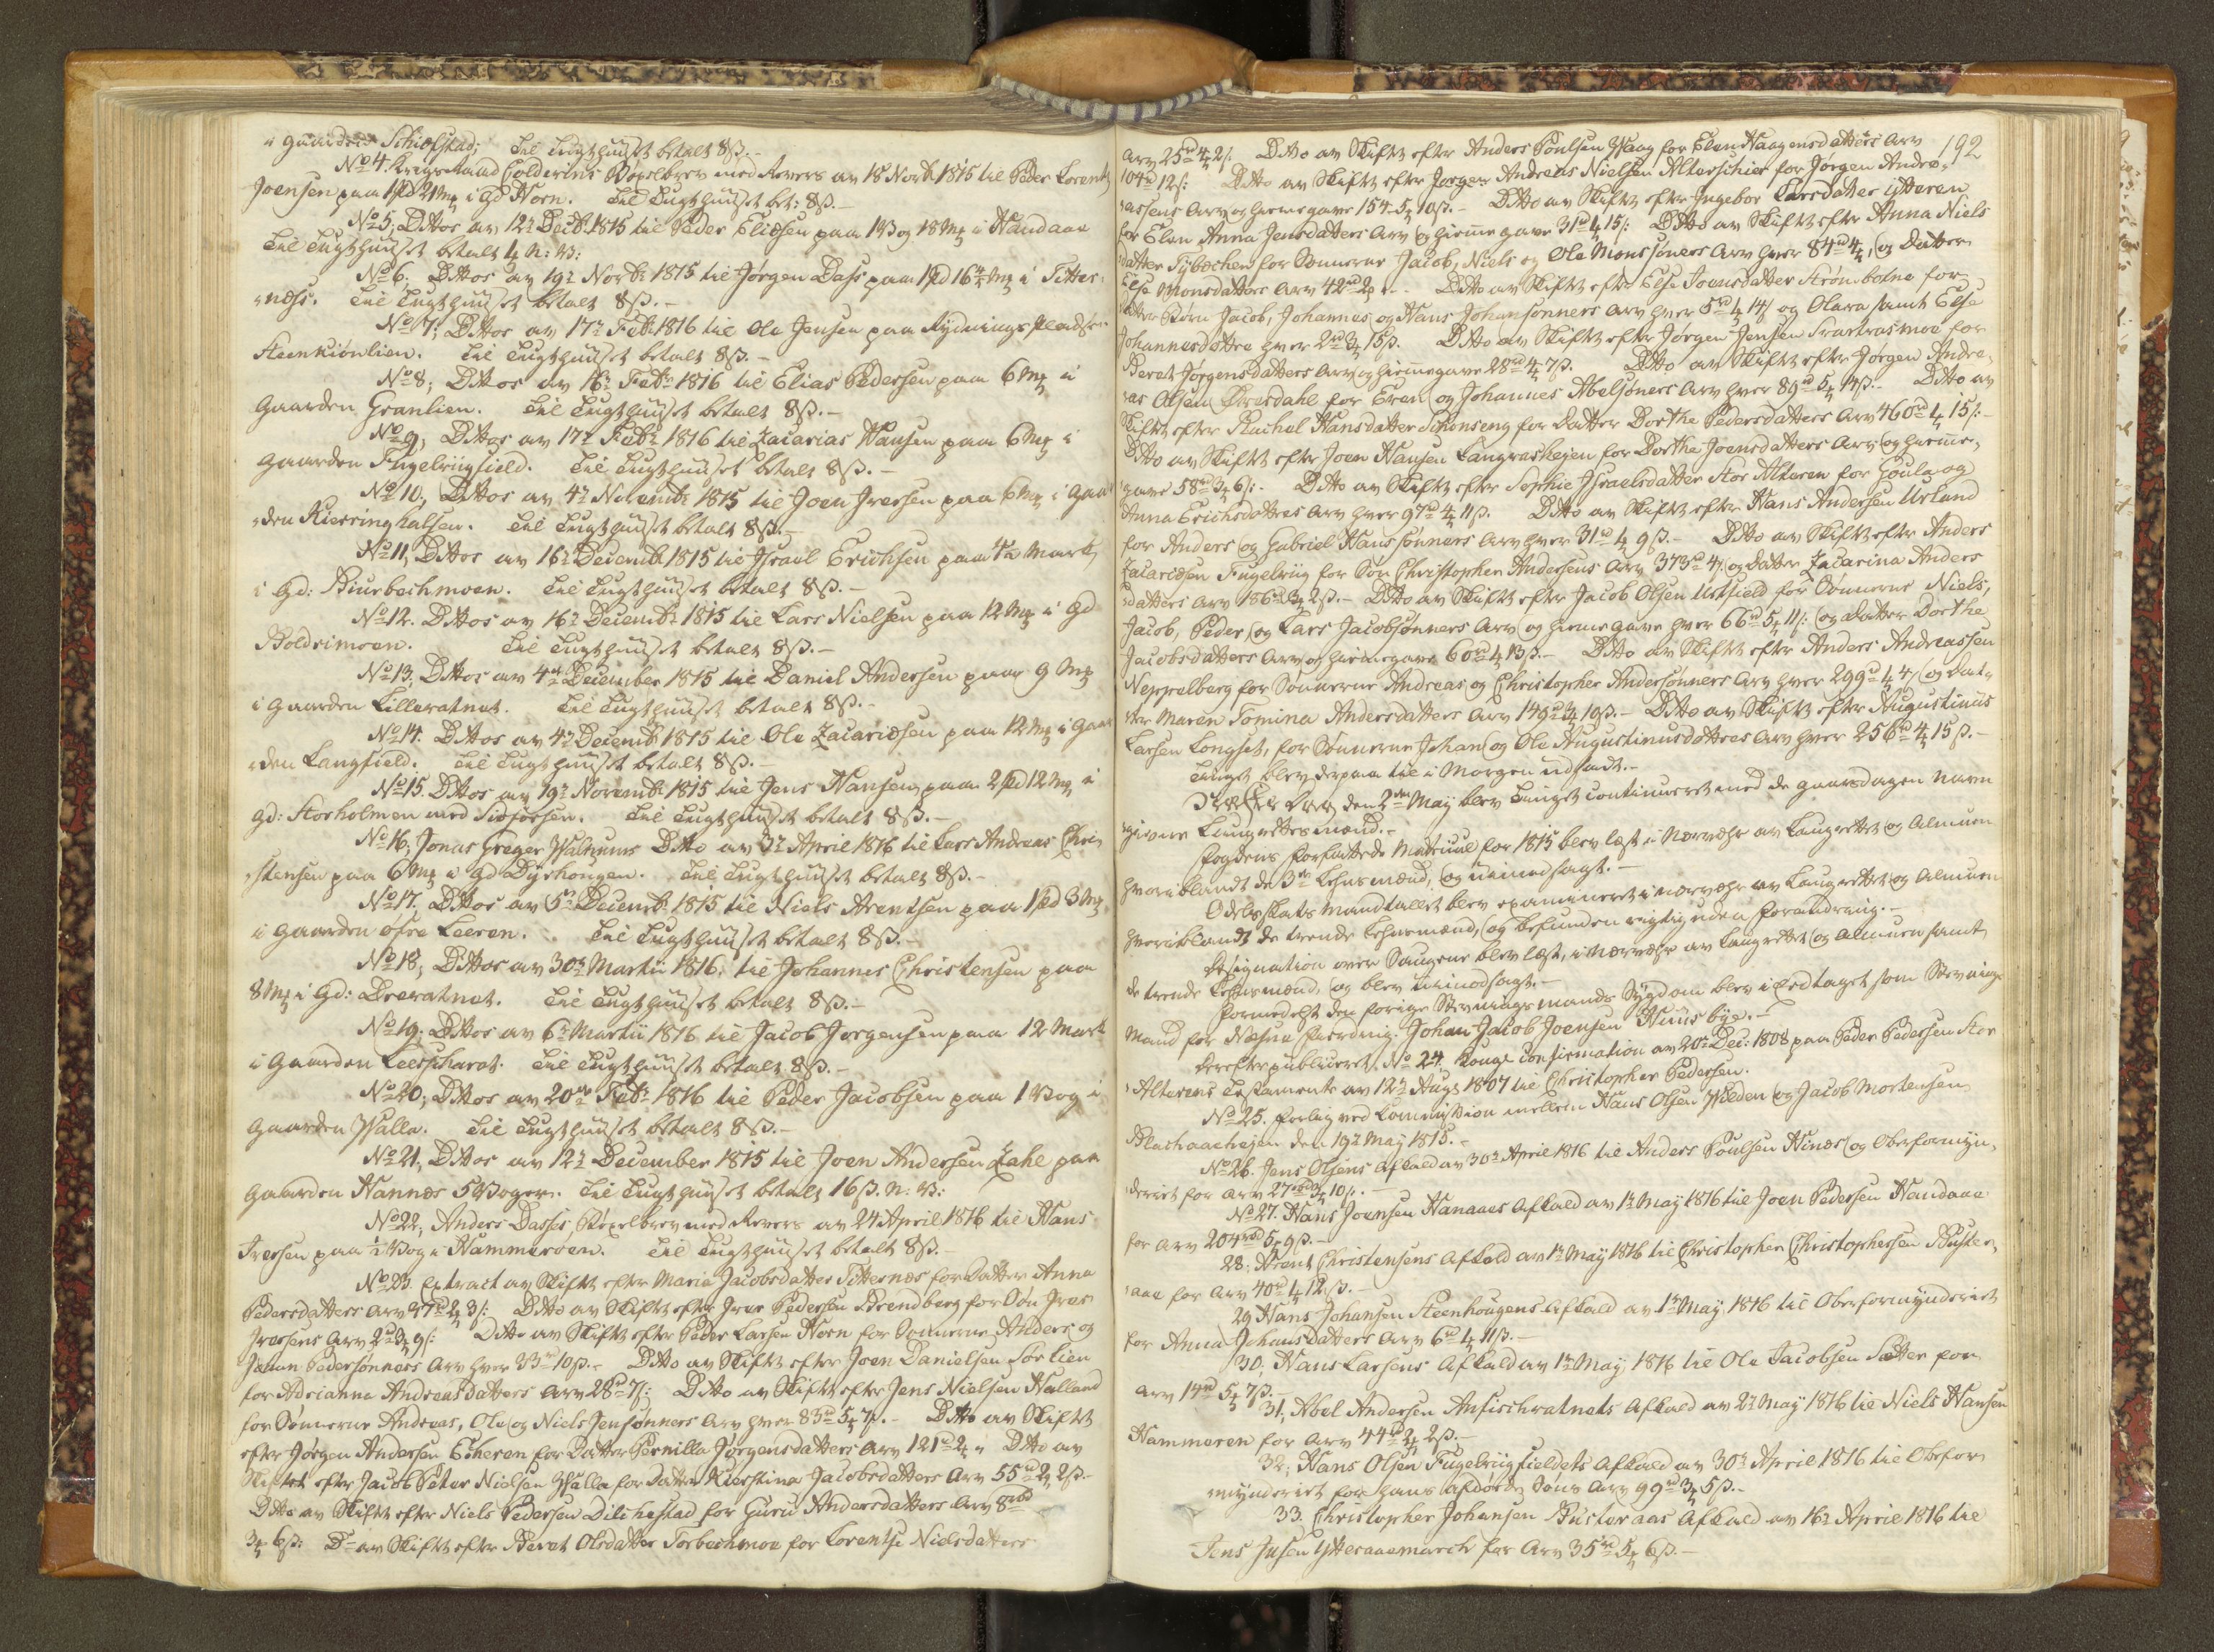 i Gaarden Schiefstad; Til Tugthuuset betalt 8ß.-
No 4. Krigsraad Coldevins Bøxelbrev med Revers av 18 Novb: 1815 til Peder Lorentz
Joensen paa 1 pd 21 mk i Gd Horn. Til Tugthuuset bet: 8ß.-
No 5; Dittos av 12te Decb: 1815 til Peder Eliæsen paa 1 Vog 18 mk i Handaae
Til Tugthuuset betalt
No 6. Dittos av 19de Novb: 1815 til Jørgen Dass paa 1 pd 16 mk i Titter-
-næss. Til Tugthuuset betalt 8ß.-
No 7; Dittos av 17de Feb: 1816 til Ole Jensen paa Rydningspladsen
Steenkiønlien. Til Tugthuuset betalt 8ß.-
No 8; Dittos av 16de Feb: 1816 til Elias Pedersen paa 6 mk i
Gaarden Granlien. Til Tugthuuset betalt 8ß.-
No 9; Dittos av 17de Feb: 1816 til Zacarias Hansen paa 6 mk i
Gaarden Fugelviigfield. Til Tugthuuset betalt 8ß.-
No 10; Dittos av 4de Novemb: 1815 til Joen Iversen paa 6 mk i Gaar-
-den Kierringhalsen. Til Tugthuuset betalt 8ß.-
No 11; Dittos av 16de Decemb: 1815 til Israel Erichsen paa Mark
i Gd: Biurbechmoen. Til Tugthuuset betalt 8ß.-
No 12. Dittos av 16de Decemb: 1815 til Lars Nielsen paa 12 mk i Gd
Boldrimoen. Til Tugthuuset betalt 8ß.-
No 13; Dittos av 4de December 1815 til Daniel Andersen paa 9 mk
i Gaarden Lillevatnet. Til Tugthuuset betalt 8ß.-
No 14. Dittos av 4de Decemb: 1815 til Ole Zacariæsen paa 12 mk i Gaar
-den Langfield. Til Tugthuuset betalt 8ß.-
No 15. Dittos av 19de Novemb: 1815 til Jens Hansen paa 2 pd 12 mk i
Gd: Storholmen med Sidforsen. Til Tugthuuset betalt 8ß.-
No 16; Jonas Greger Walnums Ditto av 3de April 1816 til Lars Andreas Chri-
-stensen paa 6 mk i Gd Dyrhougen. Til Tugthuuset betalt 8ß.-
No 17. Dittos av 5te Decemb: 1815 til Niels Arentsen paa 1 pd 3 mk
i Gaarden øfre Leeren. Til Tugthuuset betalt 8ß.-
No 18; Dittos av 30te Martii 1816; til Johannes Christensen paa
8 mk i Gd: Drevatnet. Til Tugthuuset betalt 8ß.-
No 19; Dittos av 6te Martii 1816 til Jacob Jørgensen paa 12 Mark
i Gaarden Leerscharet. Til Tugthuuset betalt 8ß.-
No 20; Dittos av 20de Feb: 1816 til Peder Jacobsen paa 1 Vog i
Gaarden Walla. Til Tugthuuset betalt 8ß.-
No 21; Dittos av 12te December 1815 til Joen Andersen Zahl paa
Gaarden Hannæs 5 Voger. Til Tugthuuset betalt 16ß. N: V:
No 22; Anders Dasses Bøxelbrev med Revers av 24 April 1816 til Hans
Iversen paa 1/2 Vog i Hammerøen. Til Tugthuuset betalt 8ß.-
No 23. Extract av Skifte efter Maria Jacobsdatter Titternæs for Datter Anna
Pedersdatters Arv 97 rd 2 3ß: Ditto av Skifte efter Iver Pedersen Brendberg for Søn Iver
Iversens Arv 2 rd 3 9ß: Ditto av Skifte efter Peder Larsen Horn for Sønnerne Anders og
Johan Pedersønners Arv hver 23 rd 10ß.- Ditto av Skifte efter Joen Danielsen Forlien
for Adrianna Andreasdatters Arv 28 rd 7ß: Ditto av Skifte efter Jens Nielsen Halland
for Sønnerne Andreas, Ole og Niels Jensønners Arv hver 83 rd 5 7ß.- Ditto av Skifte
efter Jørgen Andersen Echeren for Datter Pernilla Jørgensdatters Arv 121 rd 2 " Ditto av
Skiftet efter Jacob Peter Nielsen Walla for Datter Kierstina Jacobsdatters Arv 55 rd 2 2ß.-
Ditto av Skifte efter Niels Pedersen Dilchestad for Guru Andersdatters Arv 8 rbd
3 6ß: Do av Skifte efter Beret Olsdatter Forbechmoe for Lorentse Nielsdatters
192
Arv 25 rd 4 2ß: Ditto av Skifte efter Anders Poulsen Waag for Elen Haagensdatters Arv
104 rd 12ß: Ditto av Skifte efter Jørgen Andreas Nielsen Alterschier for Jørgen Andre-
-assens Arv og hiemegave 154 5 10ß.- Ditto av Skifte efter Ingebor Larsdatter Ytteren
for Elen Anna Jensdatters Arv og hiemegave 31 rd 4 15ß: Ditto av Skifte efter Anna Niels
datter Sybechen for Sønnerne Jacob, Niels og Ole Monssøners Arv hver 84 rd 4, og Datter
Else Monsdatters Arv 42 rd 2 ".- Ditto av Skifte efter Else Joensdatter Strømbotne for
Børn Jacob, Johannes og Hans Johansønners Arv hver 5 rd 4 14ß og Olava samt Else
Johannesdattre hver 2 rd 3 15ß. Ditto av Skifte efter Jørgen Jensen Svartvasmoe for
Beret Jørgensdatters Arv og hiemmegave 28 rd 4 7ß. Ditto av Skifte efter Jørgen Andre-
-as Olsen Øvresdahl for Even og Johannes Abelsøners Arv hver 89 rd 5 14ß.- Ditto av
Skifte efter Rachel Hansdatter Schonseng for Datter Dorthe Pedersdatters Arv 460 rd 4 15ß.-
Ditto av Skifte efter Joen Hansen Langvashejen for Dorthe Joensdatters Arv og hiemme-
gave 58 rd 3 6ß.- Ditto av Skifte efter Sophie Israelsdatter Stor Alteren for Goula og
Anna Erichsdattres Arv hver 97 rd 4 11ß. Ditto av Skifte efter Hans Andersen Urland
for Anders og Gabriel Hanssønners Arv hver 31 rd 4 9ß.- Ditto av Skifte efter Anders
Zacariæsen Fugelviig for Søn Christopher Andersens Arv 373 rd 4 og Datter Zacarina Anders
-datters Arv 186 rd 3 2ß.- Ditto av Skifte efter Jacob Olsen Urtfield for Sønnerne Niels,
Jacob, Peder og Lars Jacobsønners Arv og hiemegave hver 66 rd 5 11ß: og Datter Dorthe
Jacobsdatters Arv og hiemegave 60 rd 4 13ß.- Ditto av Skifte efter Anders Andreassen
Neppelberg for Sønnerne Andreas og Christopher Andersønners Arv hver 299 rd 4 4ß og Dat-
-ter Maren Tomina Andersdatters Arv 149 rd 4 10ß.- Ditto av Skifte efter Augustinus
Larsen Longset, for Sønnerne Johan og Ole Augustinusdattres Arv hver 256 rd 4 15ß.-
Tinget blev derpaa til i Morgen udsadt.-
den 2den May blev Tinget continueret med de gaarsdagen navn
-givne Laugrettesmænd.-
Fogdens forfattede Matricul for 1815 blev læst i Nærværelse av Laugrettet og Almuen
hvoriblandt de 3de Lehnsmænd, og uimodsagt.-
Odelsskats Mandtallet blev examineret i nærværelse av Laugrettet og Almuen
hvoriblandt de trende Lehnsmænd, og befunden rigtig uden forandring.-
Designation over Saugene blev læst, i Nærværelse av Laugrettet og Almuen samt
de trende Lehnsmænd, og blev uimodsagt.-
Formedelst den forige Stevningsmands Sygdom blev i Eed taget som Stevnings
Mand for Nesna fierding: Johan Jacob Joensen Huusbye.-
Derefter publiceret, No 24. Kongl Confirmation av 20de Dec: 1808 paa Peder Pedersen Stor
-Alterens Testamente av 12te Augt 1807 til Christopher Pedersen.
No 25. Forliig ved Commission mellem Hans Olsen Wilden og Jacob Mortensen
Blachaachejen den 19de May 1815.-
No 26. Jens Olsens Afkald av 30te April 1816 til Anders Poulsen Hinæs og Oberformyn-
deriet for Arv 27 rbd 3 10ß.-
No 27. Hans Joensen Hanaaes Afkald av 1te May 1816 til Joen Pedersen Handaae
for Arv 204 rbd 5 9ß.-
28. Arent Christensens Afkald av 1te May 1816 til Christopher Christophersen Buster-
-aae for Arv 40 rd 4 12ß.-
29 Hans Johansen Steenhougens Afkald av 1te May 1816 til Oberformynderiet
for Anna Johansdatters Arv 6 rd 4 11ß.-
30; Hans Larsens Afkald av 1te May 1816 til Ole Jacobsen Sætter for
Arv 14 rd 5 7ß.-
31; Abel Andersen Anfischvatnets Afkald av 2de May 1816 til Niels Hansen
Hammeren for Arv 44 rd 2 2ß.-
32; Hans Olsen Fugelviigfieldets Afkald av 30te April 1816 til Obefor
mynderiet for hans afdøde Søns Arv 99 rd 3 5ß.-
33. Christopher Johansen Busteraas Afkald av 16de April 1816 til
Jens Jensen Ytteraaemarch for Arv 35 rd 5 6ß.-